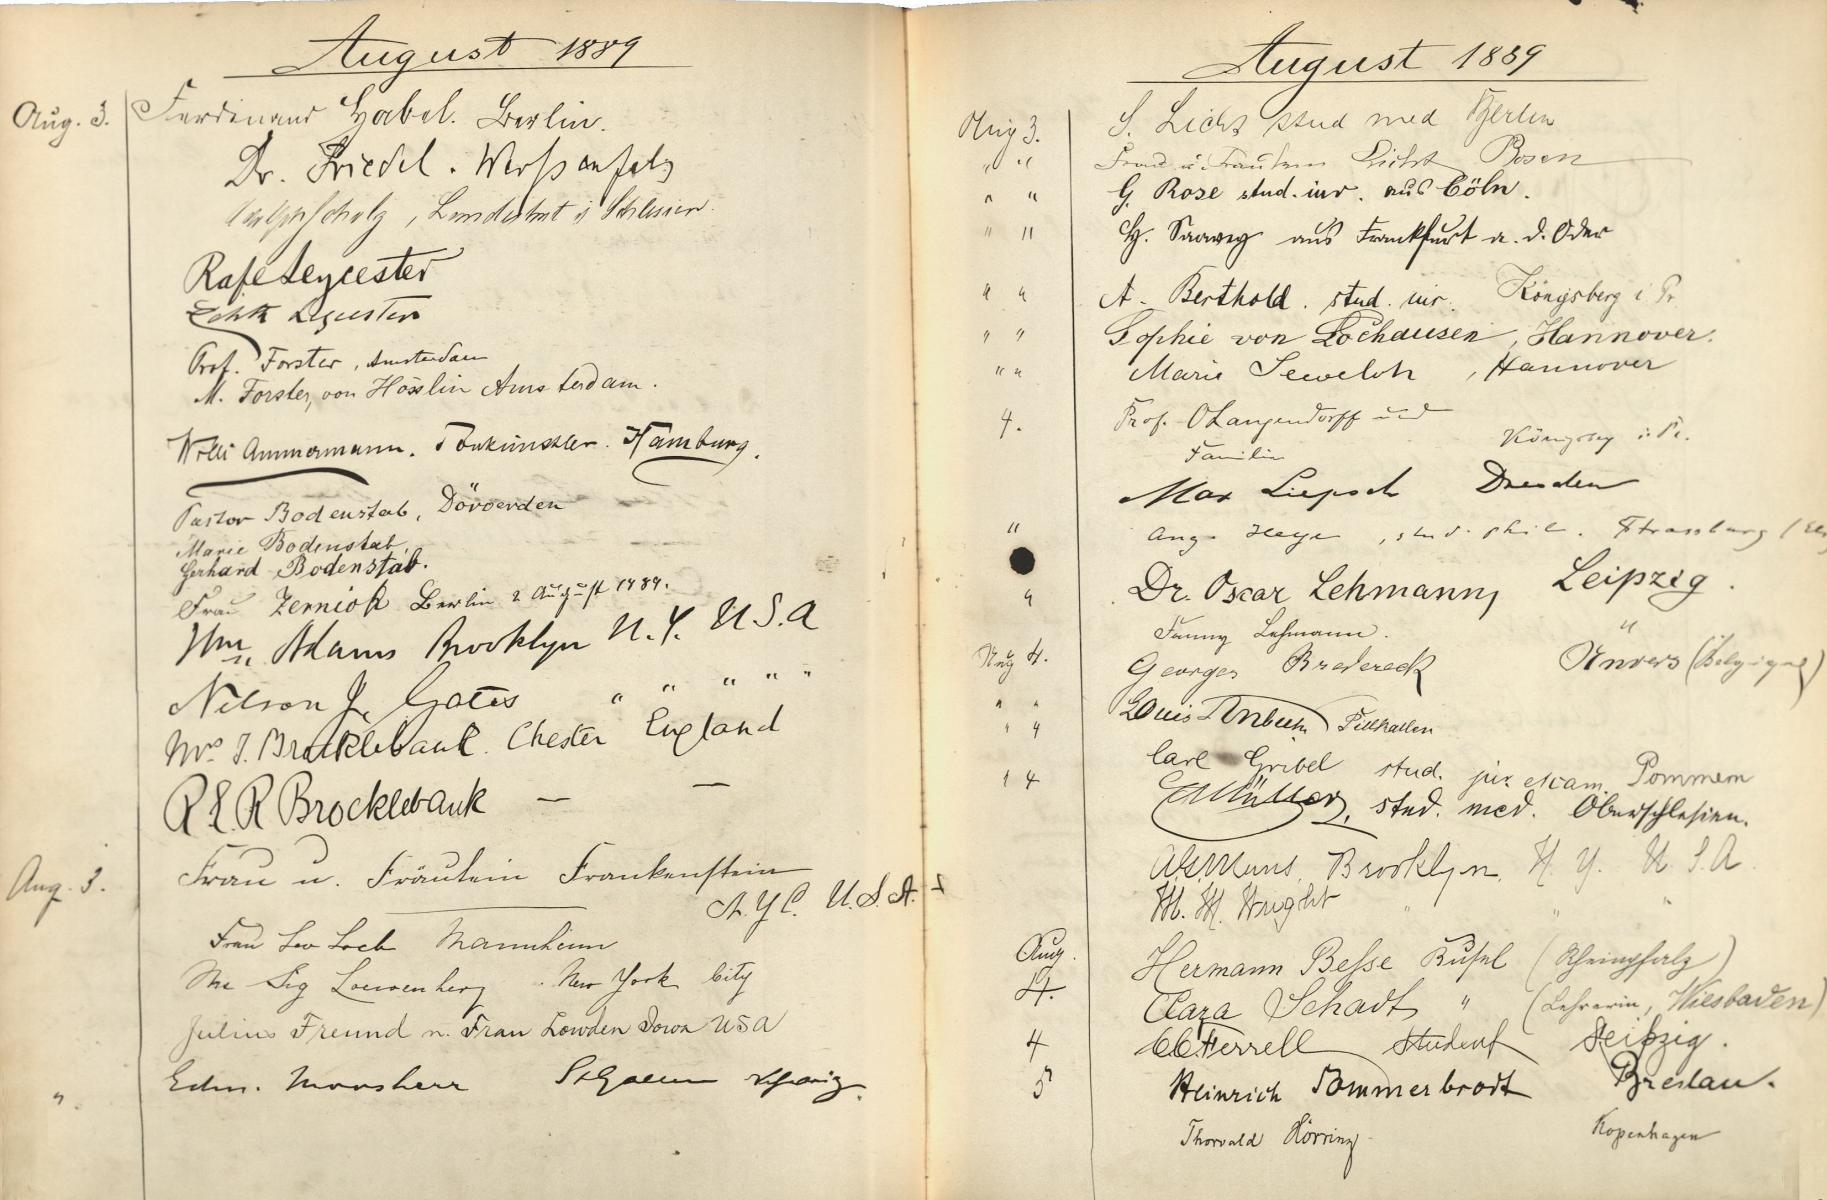 August 1889
Aug. 3. Ferdinand Habel. Berlin.
Dr. Friedel. Weißenfels
Scholz, Landeshut i/ Schlesien.
Rafe Leycester
Edith Leycester
Prof. Forster, Amsterdam
M. Forster, von Hösslin Amsterdam.
Willi Ammermann. Tonkünstler. Hamburg.
Pastor Bodenstab, Dörverden
Marie Bodenstab,
Gerhard Bodenstab.
Frau Zernick Berlin 2 August 1889.
Wm Adams Brooklyn N.Y. U.S.A
Nelson J. Gates " " " " "
Mrs. J. Brocklebank. Chester England
R E R Brocklebank — —
Aug. 3. Frau u. Fräulein Frankenstein
N.Y C. U.S.A.
Frau Leo Loeb Mannheim
Sig Loewenberg. New York City
Julius Freund u. Frau Lowden Iowa USA
". Edm. St Gallen Schweiz.
August 1889
Aug 3. S. Licht stud med Berlin
" " Frau u. Fräulein Licht Posen
" " G. Rose stud. iur. aus Cöln.
" " H. aus Frankfurt a. d. Oder
" " A. Berthold. stud. iur. Königsberg i Pr
" " Sophie von Lochausen, Hannover.
" " Marie Seweloh, Hannover
4. Prof. O Langendorff und
Familie Königsbg i. Pr.
Max Liepsch Dresden
" Aug. Heye, stud. phil. Strassburg
" Dr. Oscar Lehmann, Leipzig.
Fanny Lehmann. "
Aug 4. Georges Bredereck Anvers (Belgique)
" " Louis Pillkallen
" 4 Carl Gribel stud. jur. exam. Pommern
" 4 Müller, stud. med. Oberschlesien.
Brooklyn. N. Y. U. S. A
M. M. Wright " " "
Aug. Hermann Besse Kusel (Rheinpfalz)
4. Clara Schadt " (Lehrerin, Wiesbaden)
4 CC Ferrell Student Leipzig.
5 Heinrich Sommerbrodt Breslau.
Thorvald Hörring Kopenhagen